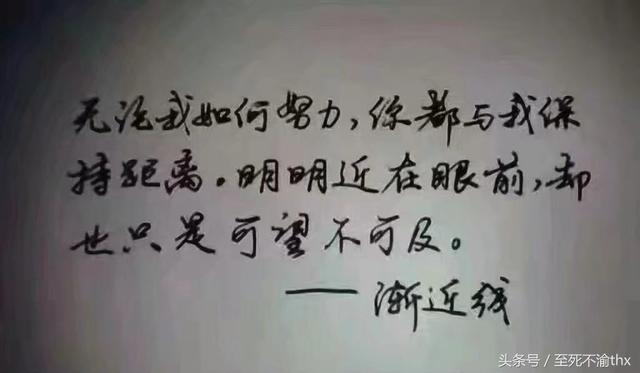 无论我如何努力,你都与我保
持距离。明明近在眼前,却
也只是可望不可及。
——渐近线
头条号 / 至死不渝thx